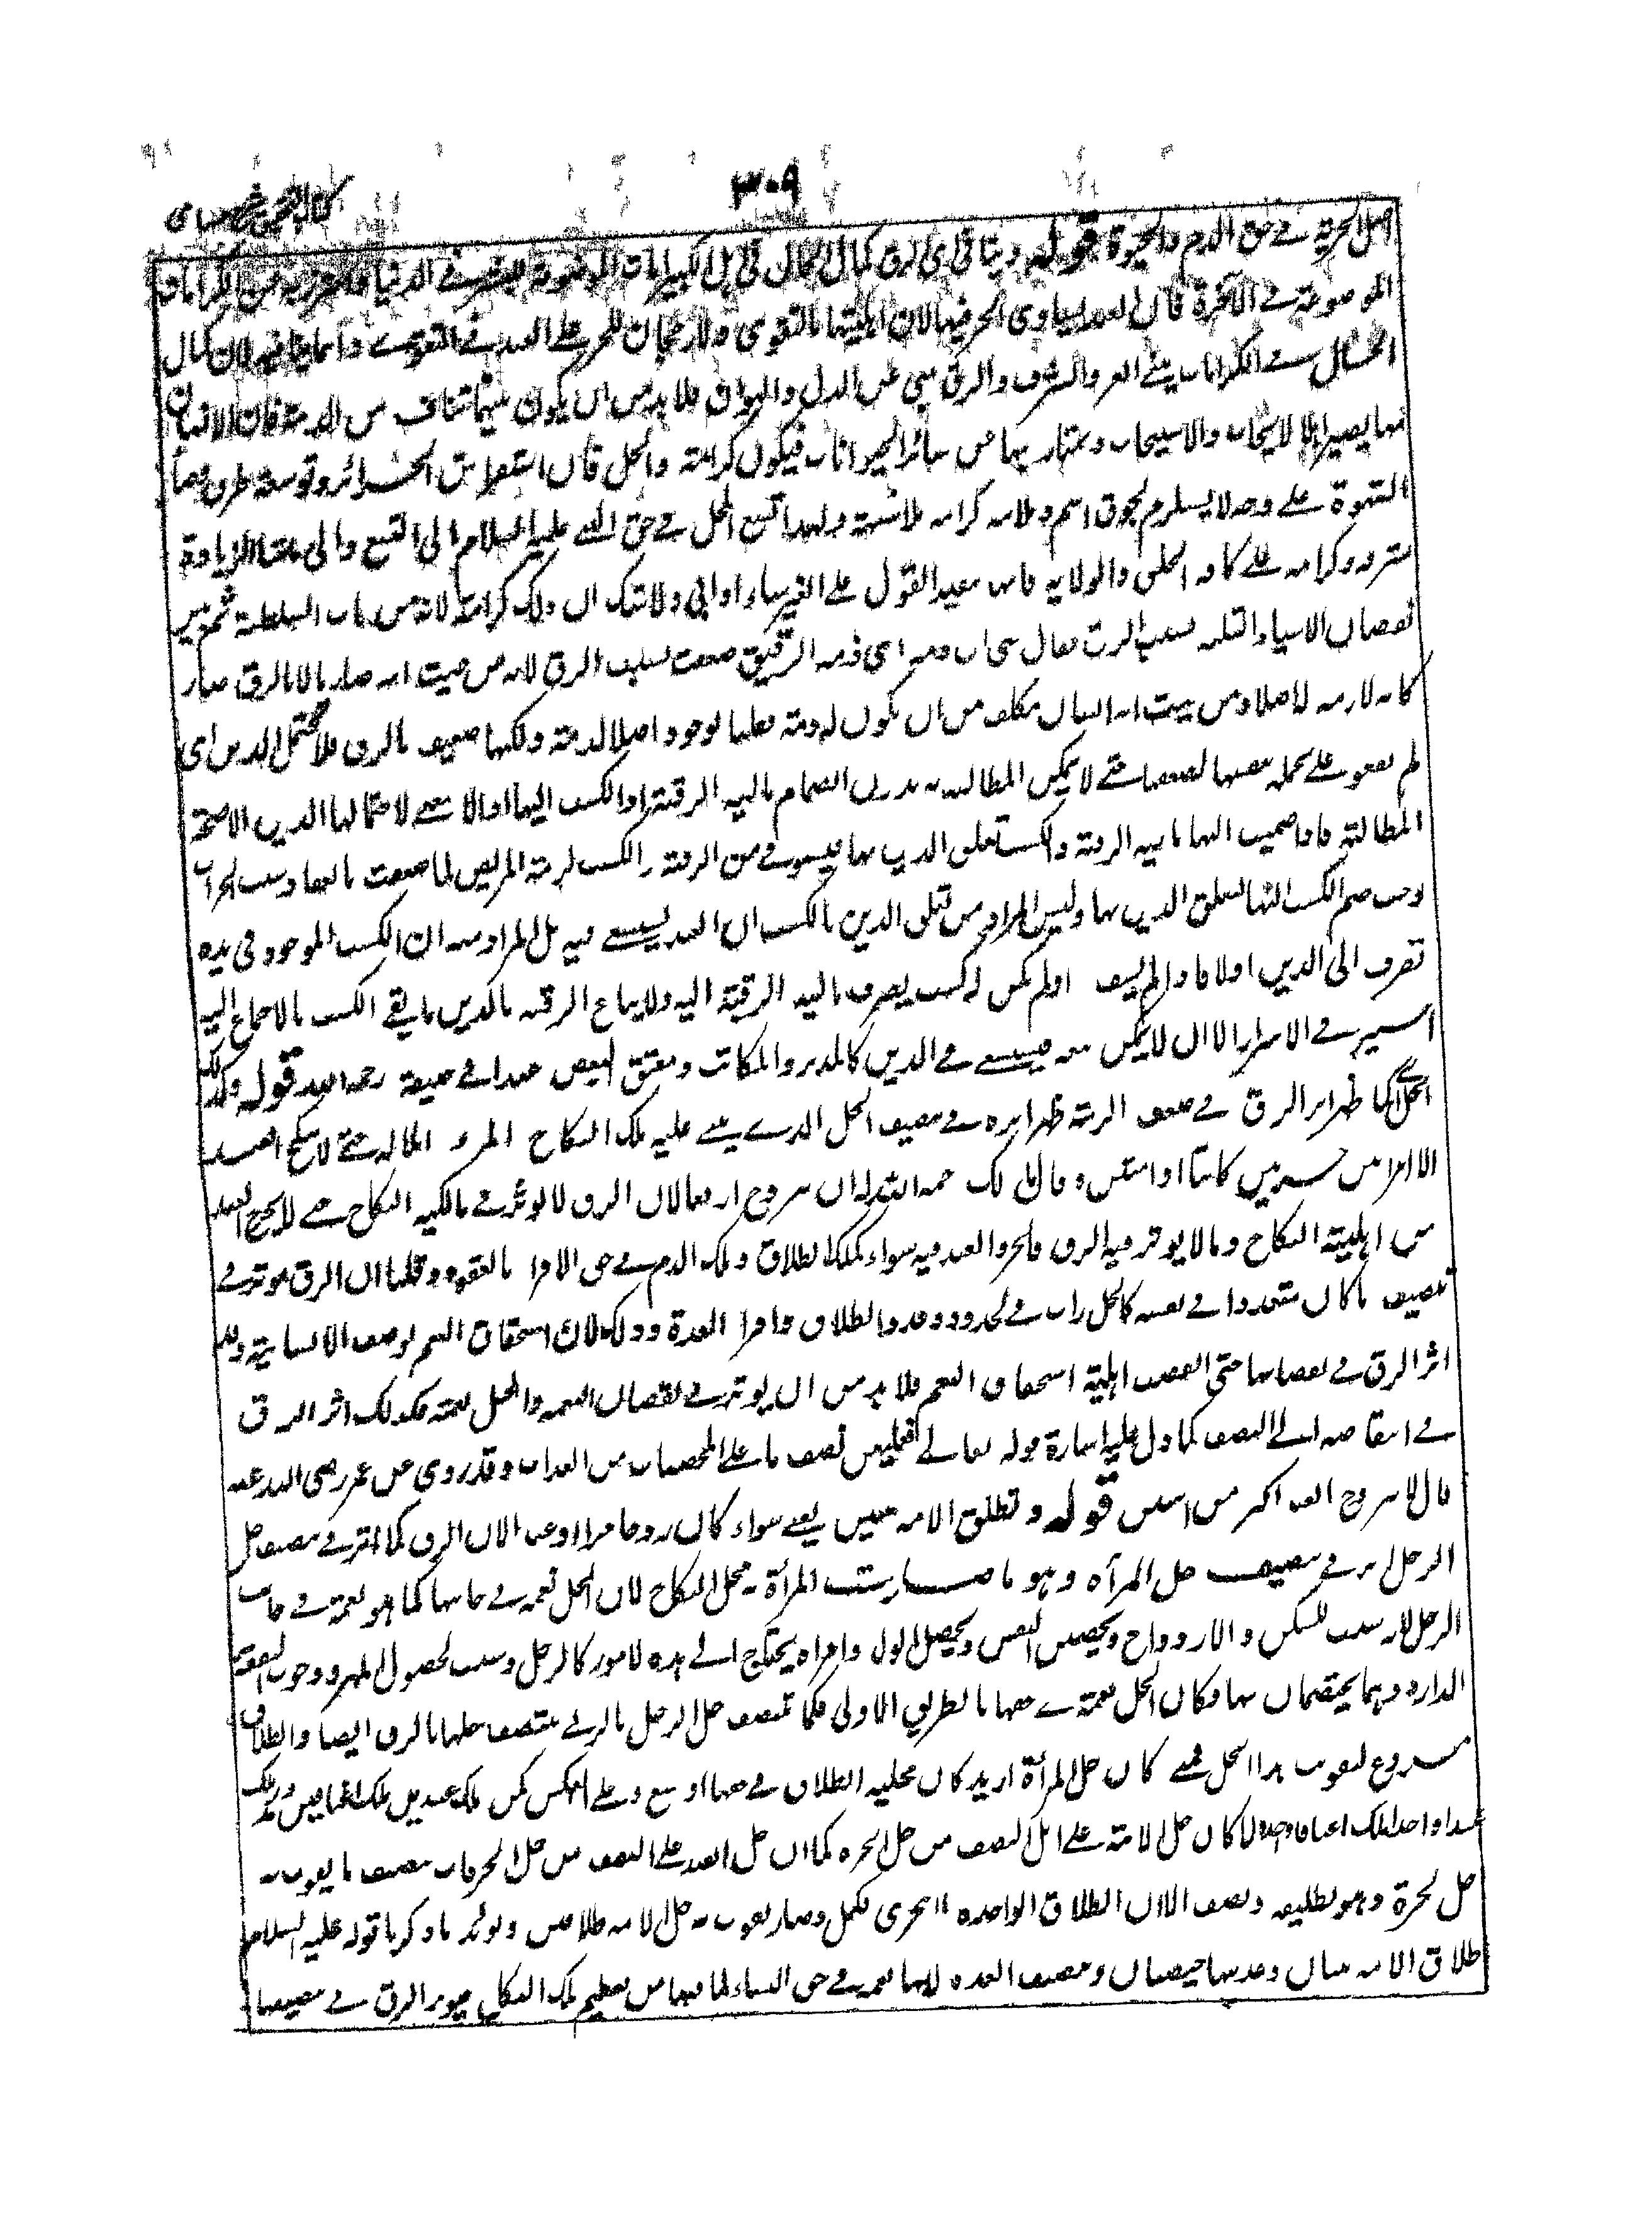 ٣٠٩
كتاب التحقيق شرح حسامى
اصل الحرية فے حق الدم والحيوة قوله وينافى اى الرق كمال الحال فى اہلية الكرامات الموضوعة للبشر فے الدنيا عن الكرامات
الموضوعة فے الآخرة فان العبد يساوى الحر فيها لان اہليتها بالتقوى ولا رجحان للحر علے العبد فے التقوى وانما ينافيه لان كمال
الحال فے الكرامات ينبئ العز والشرف والرق ينبئ عن الذل والهوان فلا بد من ان يكون بينهما تناف من الذمة فان الانسان
بها يصير اہلا للايجاب والاستيجاب ويمتاز بها من سائر الحيوانات فيكون كرامة والحل فان استفراش الحرائر وتوسعة طرق قضاء
الشهوة علے وجه لا يستلزم لحوق اثم وملامة كرامة بلا شبهة ولهذا اتسع الحل فے حق النبى عليه السلام الى التسع والى ما شاء لزيادة
شرفه وكرامته علے كافة الخلق والولاية فانها تنفيذ القول علے الغير شاء او ابى ولا شك ان ذلك كرامة لانه من باب السلطنة ثم بين
نقصان الاشياء الثلثة بسبب الرق فقال حتى ان ذمته اى ذمة الرقيق ضعفت بسبب الرق لانه من حيث انه صار مالا بالرق صار
كانه لا ذمة له اصلا ومن حيث انه انسان مكلف من ان يكون له ذمة فقلنا بوجود اصل الذمة ولكنها ضعيف بالرق فلا تحتمل الدين اى
لم تقو علے تحمله بنفسها لضعفها حتے لا يمكن المطالبة به بدون انضمام مالية الرقبة او الكسب اليها اذ لا معنے لاحتمالها الدين الا صحة
المطالبة فاذا ضمت اليها مالية الرقبة والكسب تعلق الدين بها فيستوفے من الرقبة والكسب كذمة المريض لما ضعفت
وجب ضم الكسب اليها لتعلق الدين بها وليس المراد من تعلق الدين بالكسب ان العبد يستسعے فيه بل المراد منه ان الكسب الموجود فى يده
تصرف الى الدين اولا فاذا لم يف او لم يكن له كسب يصرف مالية الرقبة اليه ولا يباع الرقبة بالدين ما بقے الكسب بالاجماع اليه
اشير فے الاسرار الا ان لا يمكن بيعه فيستسعے فے الدين كالمدبر والمكاتب ومعتق البعض عند ابى حنيفة رحمه الله قوله وكذلك
الحل اى كما ظهر اثر الرق فے ضعف الذمة ظهر اثره فے تنصيف الحل الذے يبتنے عليه ملك النكاح حتے لا ينكح العبد
الا امرأتين حرتين كانتا او امتين وقال مالك رحمه الله له ان يتزوج اربعا لان الرق لا يؤثر فے مالكية النكاح حتے لا يخرج العبد
من اہلية النكاح وما لا يؤثر فيه الرق فالحر والعبد فيه سواء كملك الطلاق وملك الدم فے حق الاقرار بالعقوبة وقلنا ان الرق مؤثر فے
تنصيف ما كان متعددا فے نفسه كالجلدات فے الحدود وعدد الطلاق واقراء العدة وذلك لان استحقاق النعم بوصف الانسانية وقد
اثر الرق فے نقصانها حتى انتقصت اہلية استحقاق النعم فلا بد من ان يؤثر فے نقصان النعمة والحل نعمة فكذلك اثر الرق
فے انتقاصه الے النصف كما دل عليه اشارة قوله تعالے فعليهن نصف ما علے المحصنات من العذاب وقد روى عن عمر رضى الله عنه
قال لا يتزوج العبد اكثر من اثنين قوله وتطلق الامة ثنتين يعنے سواء كان زوجها حرا او عبدا لان الرق كما اثر فے تنصيف حل
الرجل اثر فے تنصيف حل المرأة وهو ما صارت المرأة به محل النكاح لان الحل نعمة فے جانبها كما هو نعمة فے جانب
الرجل لانه سبب للسكن والازدواج وتحصين النفس وتحصيل الولد والمرأة يحتاج الے هذه الامور كالرجل وسبب لحصول المهر ووجوب النفقة
الدارة وهما يختصان بها وكان الحل نعمة فے حقها بالطريق الاولى فكما تنصف حل الرجل بالرق يتنصف حلها بالرق ايضا والطلاق
مشروع لتفويت هذا الحل فمتے كان حل المرأة ازيد كان محلية الطلاق فے حقها اوسع وعلے العكس كمن ملك عبدين ملك اعتاقين ومن ملك
عبدا واحدا ملك اعتاقا واحدا لما كان حل الامة علے النصف من حل الحرة كما ان حل العبد علے النصف من حل الحر فات نصف ما يفوت به
حل الحرة وهو تطليقة ونصف الا ان الطلاق الواحدة لا تتجزى فتكمل وصار يفوت به حل الامة طلاقين ويؤيد ما ذكرنا قوله عليه السلام
طلاق الامة ثنتان وعدتها حيضتان وتنصف العدة لانها نعمة فے حق النساء لما فيها من تعظيم ملك النكاح فيؤثر الرق فے تنصيفها